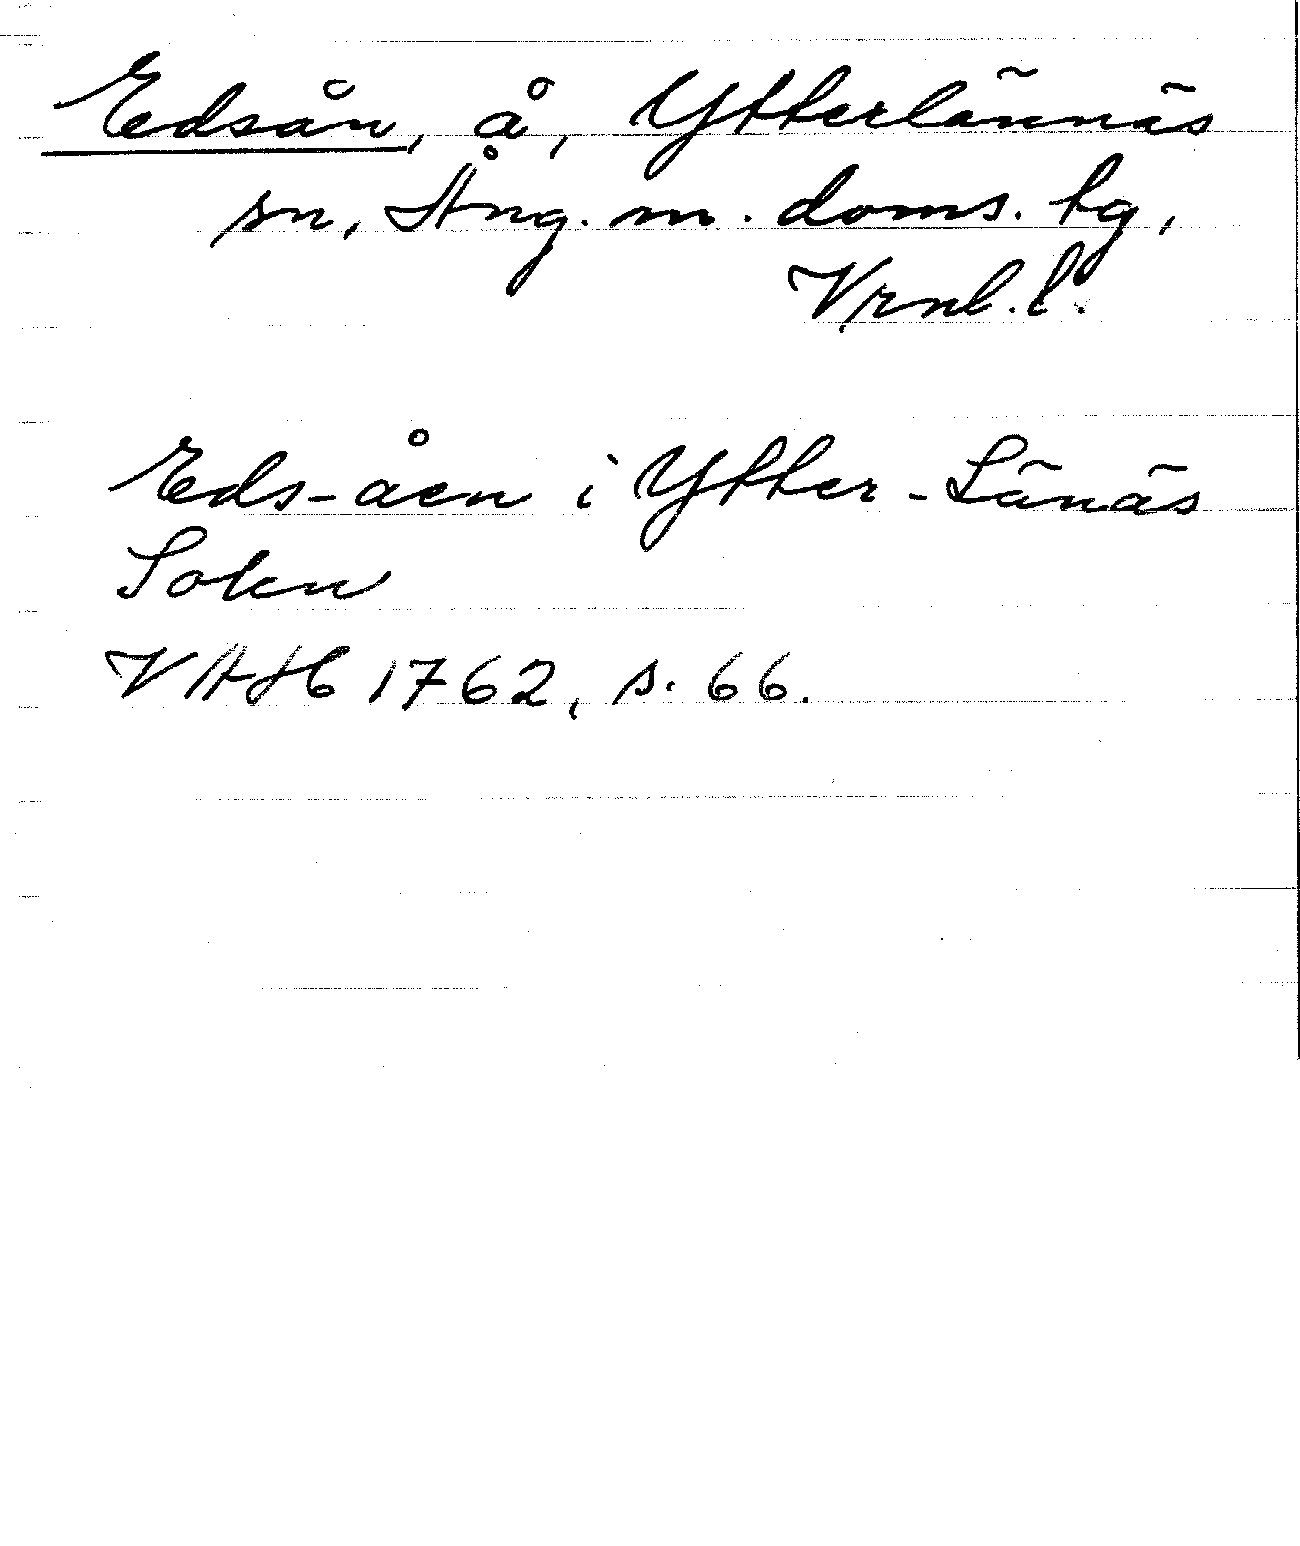 Edsån, å, Ytterlännäs
sn, Ång. m. doms. tg,
Vrnl. l.
Eds-åen i Ytter-Länäs
Sokn
VAH 1762, s. 66.